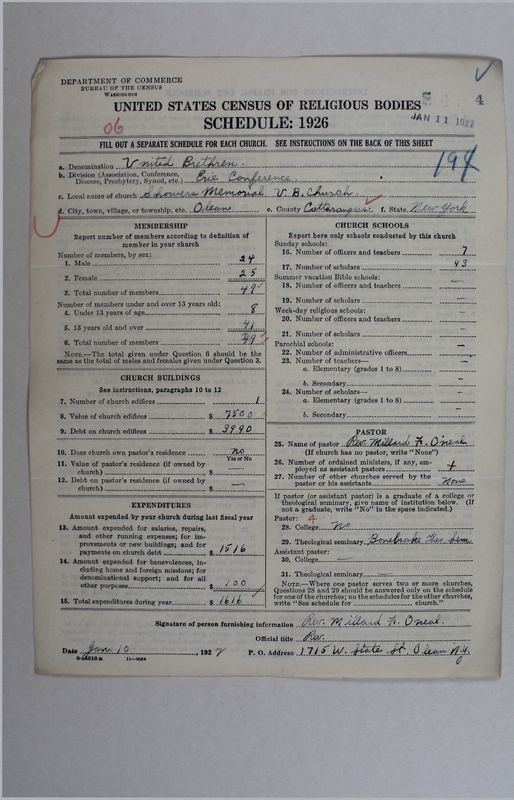 DEPARTMENT OF COMMERCE
BUREAU OF THE CENSUS
WASHINGTON
4
UNITED STATES CENSUS OF RELIGIOUS BODIES
JAN 11 1927
SCHEDULE: 1926
06
FILL OUT A SEPARATE SCHEDULE FOR EACH CHURCH. SEE INSTRUCTIONS ON THE BACK OF THIS SHEET
a. Denomination United Brethren.
b. Division (Association, Conference, Diocese, Presbytery, Synod, etc.) Erie Conference
c. Local name of church Showers Memorial U. B. Church.
d. City, town, village, or township, etc. Olean e. County Cattaraugus. f. State New York
MEMBERSHIP
Report number of members according to definition of
member in your church
Number of members, by sex:
1. Male 24
2. Female 25
3. Total number of members 49
Number of members under and over 13 years old:
4. Under 13 years of age 8
5. 13 years old and over 41
6. Total number of members 49
NOTE.—The total given under Question 6 should be the
same as the total of males and females given under Question 3.
CHURCH BUILDINGS
See instructions, paragraphs 10 to 12
7. Number of church edifices 1
8. Value of church edifices $ 7500
9. Debt on church edifices $ 3990
10. Does church own pastor's residence no
Yes or No
11. Value of pastor's residence (if owned by
church) $ —
12. Debt on pastor's residence (if owned by
church) $ —
EXPENDITURES
Amount expended by your church during last fiscal year
13. Amount expended for salaries, repairs,
and other running expenses; for im-
provements or new buildings; and for
payments on church debt $ 1516
14. Amount expended for benevolences, in-
cluding home and foreign missions; for
denominational support; and for all
other purposes $ 100
15. Total expenditures during year $ 1616
CHURCH SCHOOLS
Report here only schools conducted by this church
Sunday schools:
16. Number of officers and teachers 7
17. Number of scholars 43
Summer vacation Bible schools:
18. Number of officers and teachers —
19. Number of scholars —
Week-day religious schools:
20. Number of officers and teachers —
21. Number of scholars —
Parochial schools:
22. Number of administrative officers —
23. Number of teachers—
a. Elementary (grades 1 to 8) —
b. Secondary —
24. Number of scholars—
a. Elementary (grades 1 to 8) —
b. Secondary —
PASTOR
25. Name of pastor Rev. Millard F. O'neal
(If church has no pastor, write "None")
26. Number of ordained ministers, if any, em-
ployed as assistant pastors
27. Number of other churches served by the
pastor or his assistants None
If pastor (or assistant pastor) is a graduate of a college or
theological seminary, give name of institution below. (If
not a graduate, write "No" in the space indicated.)
Pastor: 4
28. College No
29. Theological seminary Bonebrake Theo. Sem.
Assistant pastor:
30. College —
31. Theological seminary —
NOTE.—Where one pastor serves two or more churches,
Questions 28 and 29 should be answered only on the schedule
for one of the churches; on the schedules for the other churches,
write "See schedule for church."
Signature of person furnishing information Rev. Millard F. O'neal.
Official title Rev.
Date Jan. 10, 1927 P. O. Address 1715 W. State St. Olean N.Y.
11—9664